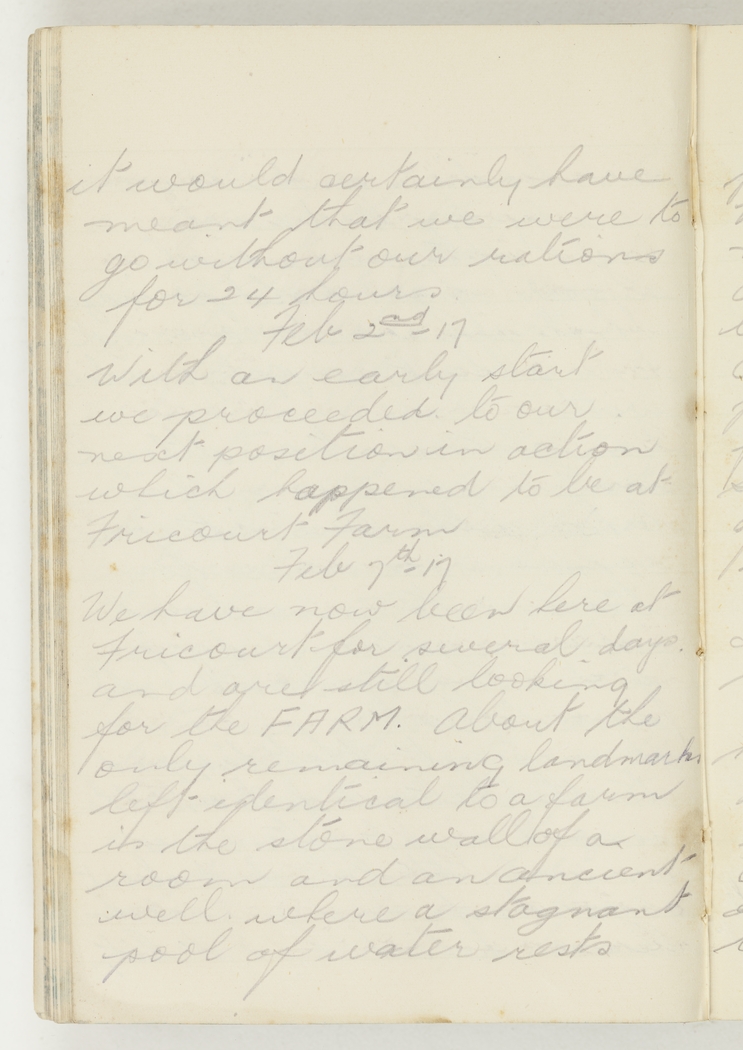 it would certainly have
meant that we were to
go without our rations
for 24 hours.
Feb 2nd-17
With an early start
we proceeded to our
next position in action
which happened to be at
Fricourt Farm
Feb 7th-17
We have now been here at
Fricourt for several days.
and are still looking
for the FARM. About the
only remaining landmark
left identical to a farm
is the stone wall of a
room and an ancient
well. where a stagnant
pool of water rests